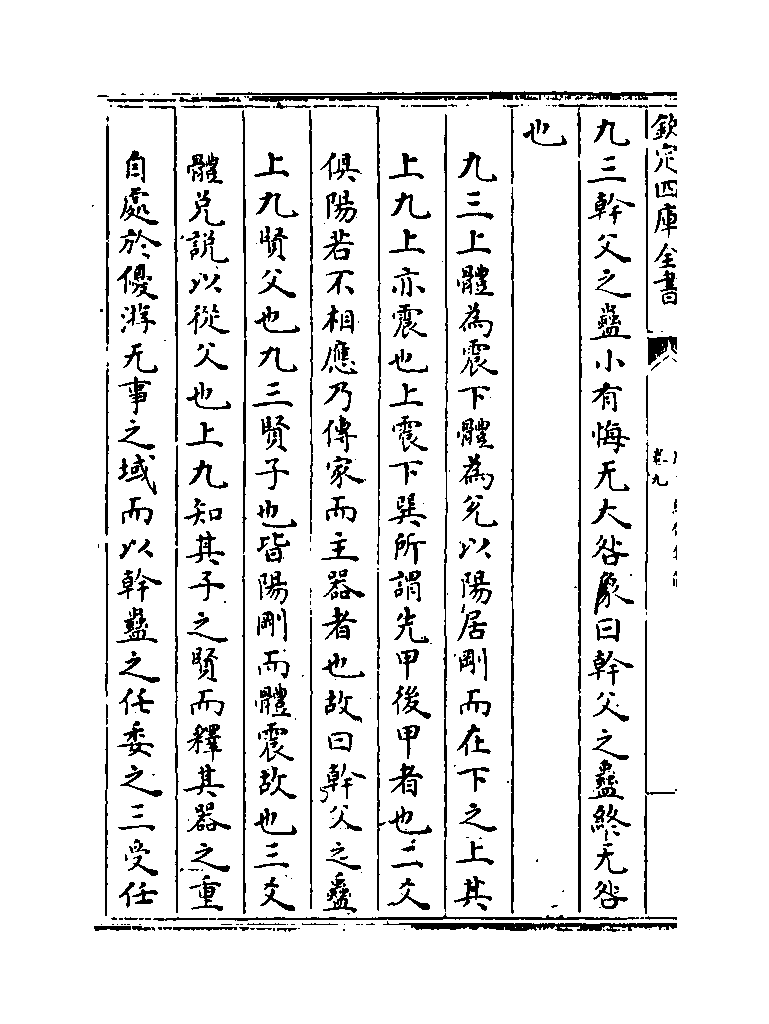 欽定四庫全書
卷九
九三幹父之蠱小有悔无大咎象曰幹父之蠱終无咎
也
九三上體為震下體為兌以陽居剛而在下之上其
上九上亦震也上震下巽所謂先甲後甲者也二爻
俱陽若不相應乃傳家而主器者也故曰幹父之蠱
上九賢父也九三賢子也皆陽剛而體震故也三爻
體兌說以從父也上九知其子之賢而釋其器之重
自處於優游无事之域而以幹蠱之任委之三受任